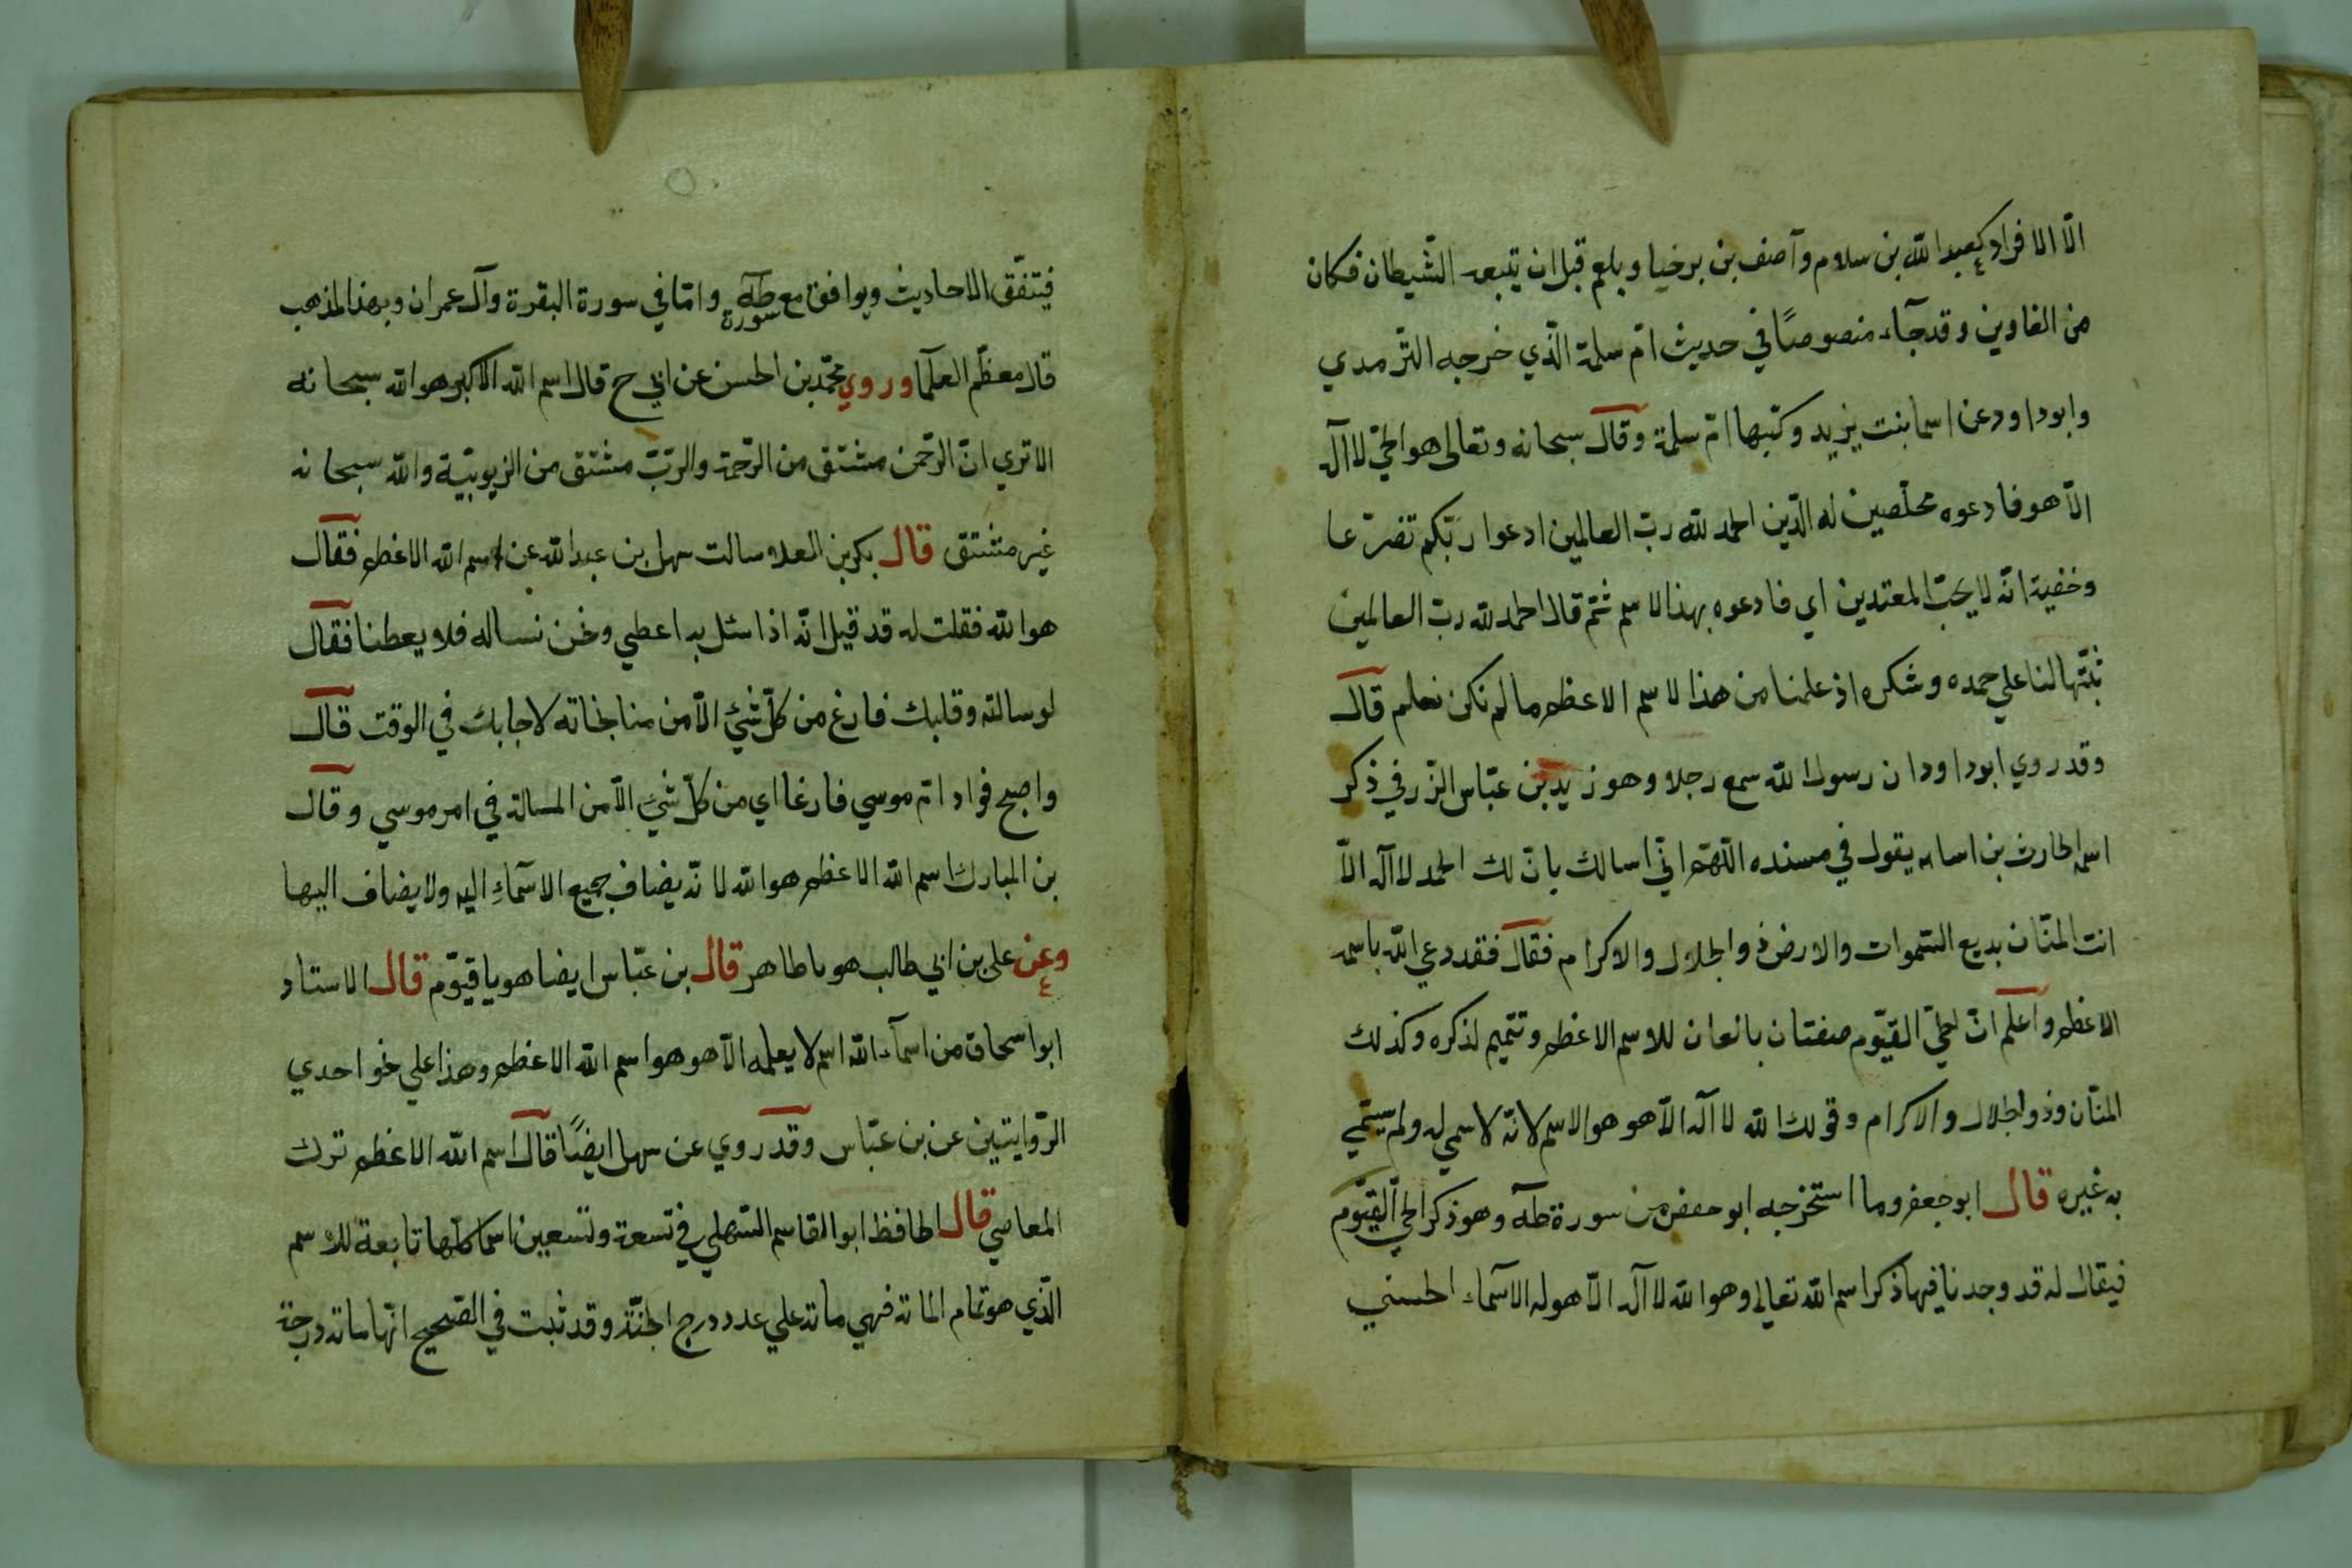 الّا الافراد كعبد الله بن سلام وآصف بن برخيا وبلعم قبل ان يتبعه الشّيطان فكان
من الغاوين وقد جآء منصوصًا في حديث امّ سلمة الّذي خرجه الترمدي
وابو داود عن اسما بنت يزيد وكنّيها امّ سلمة وقال سبحانه وتعالى هو الحيّ لا اله
الّا هو فادعوه مخلصين له الدّين الحمد لله ربّ العالمين ادعوا ربّكم تضرّعا
وخفية انّه لا يحبّ المعتدين اي فادعوه بهذا الاسم ثمّ قال الحمد لله ربّ العالمين
نبّتها لنا علي حمده وشكره اذ علمنا من هذا الاسم الاعظم ما لم نكن نعلم قال
وقد روي ابو داود ان رسول الله سمع رجلا وهو زيد بن عبّاس الزّرفي ذكر
اسمه الحارث بن اسامه يقول في مسنده اللّهمّ انّي اسالك بانّ لك الحمد لا اله الّا
انت المنّان بديع السّموات والارض ذو الجلال والاكرام فقال فقد دعي الله باسمه
الاعظم واعلم انّ الحيّ القيّوم صفتان بانعوان للاسم الاعظم وتتميم لذكره وكذلك
المنّان وذو الجلال والاكرام وقولك الله لا اله الّا هو هو الاسم لانّه لا سمي له ولم يتسمّي
به غيره قال ابو جعفر وما استخرجه ابو حفص من سورة طه وهو ذكر الحيّ القيّوم
فيقال له قد وجدنا فيها ذكر اسم الله تعالي وهو الله لا اله الّا هو له الاسمآء الحسني
فيتفّق الاحاديث ويوافق مع سورة طه وامّا في سورة البقرة وآل عمران وبهذا المذهب
قال معظّم العلما وروي محمّد بن الحسن عن ابي ح قال اسم الله الاكبر هو الله سبحانه
الا تري انّ الرّحمن مشتق من الرّحمة والربّ مشتق من الربوبيّة والله سبحانه
غير مشتق قال بكر بن العلا سالت سهل بن عبد الله عن اسم الله الاعظم فقال
هو الله فقلت له قد قيل انّه اذا سئل به اعطي ونحن نساله فلا يعطنا فقال
لو سالته وقلبك فارغ من كلّ شيء الّا من مناجاته لاجابك في الوقت قال
واصبح فواد امّ موسي فارغا اي من كلّ شيء الّا من المسالة في امر موسي وقال
بن المبارك اسم الله الاعظم هو الله لانّه يضاف جميع الاسمآءِ اليه ولا يضاف اليها
وعن علي بن ابي طالب هو يا طاهر قال بن عبّاس ايضا هو يا قيّوم قال الاستاد
ابو اسحاق من اسمآء الله اسم لا يعلمه الّا هو وهو اسم الله الاعظم وهذا علي نحو احدي
الرّوايتين عن بن عبّاس وقد روي عن سهل ايضًا قال اسم الله الاعظم ترك
المعاصي قال الحافظ ابو القاسم السّهلي في تسعة وتسعين اسما كلّها تابعة للاسم
الّذي هو تمام المائة فهي مائة علي عدد درج الجنّة وقد ثبت في الصّحيح انّها مائة درجة